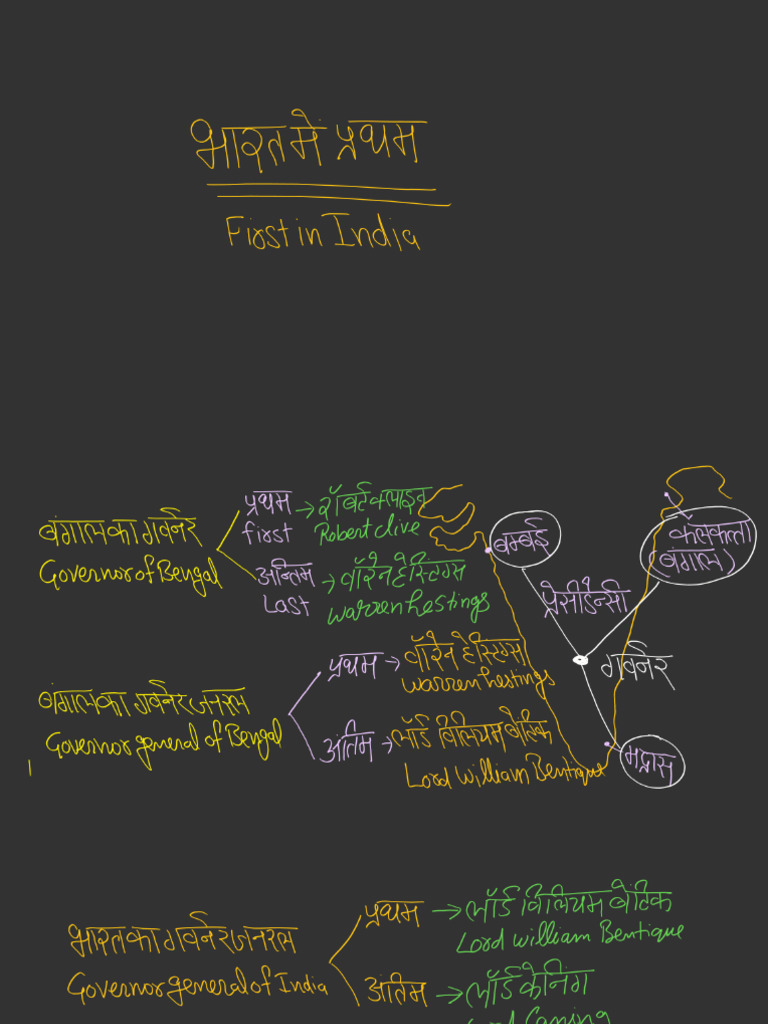 भारत में प्रथम
First in India
बंगाल का गवर्नर
Governor of Bengal
प्रथम → रॉबर्ट क्लाइव
first Robert clive
अन्तिम → वॉरेन हेस्टिंग्स
Last warren hestings
बम्बई
कॅलकत्ता
(बंगाल)
प्रेसीडैन्सी
गवर्नर
मद्रास
बंगाल का गवर्नर जनरल
Governor general of Bengal
प्रथम → वॉरेन हेस्टिंग्स
warren hestings
अंतिम → लॉर्ड विलियम बैंटिक
Lord william Bentique
भारत का गवर्नर जनरल
Governor general of India
प्रथम → लॉर्ड विलियम बेंटिक
Lord william Bentique
अंतिम → लॉर्ड केनिंग
Lord Canning